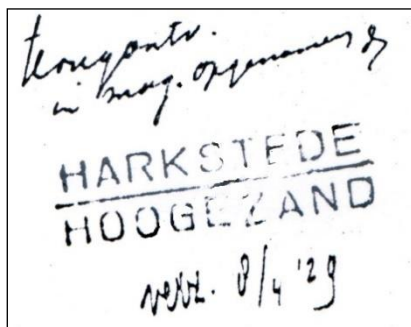 terugontv.
in mag. opgenomen
HARKSTEDE
HOOGEZAND
verz. 8/4 '29